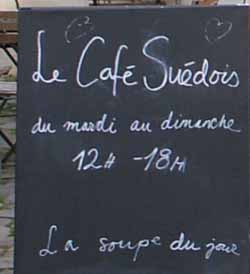 Le Café Suédois
du mardi au dimanche
12H -18H
La soupe du jour